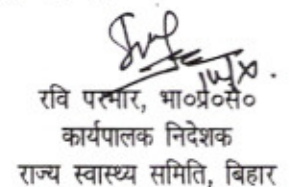 रवि परमार, भा०प्रे०से०
कार्यपालक निदेशक
राज्य स्वास्थ्य समिति, बिहार